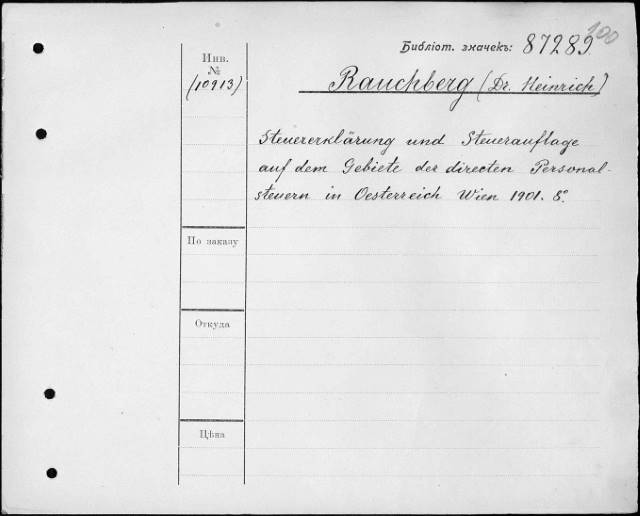 100
Библіот. значекъ: 87289.
Инв.
№
(10913)
Rauchberg (Dr. Heinrich)
Steuererklärung und Steuerauflage
auf dem Gebiete der directen Personal-
steuern in Oesterreich Wien 1901. 8°.
По заказу
Откуда
Цѣна